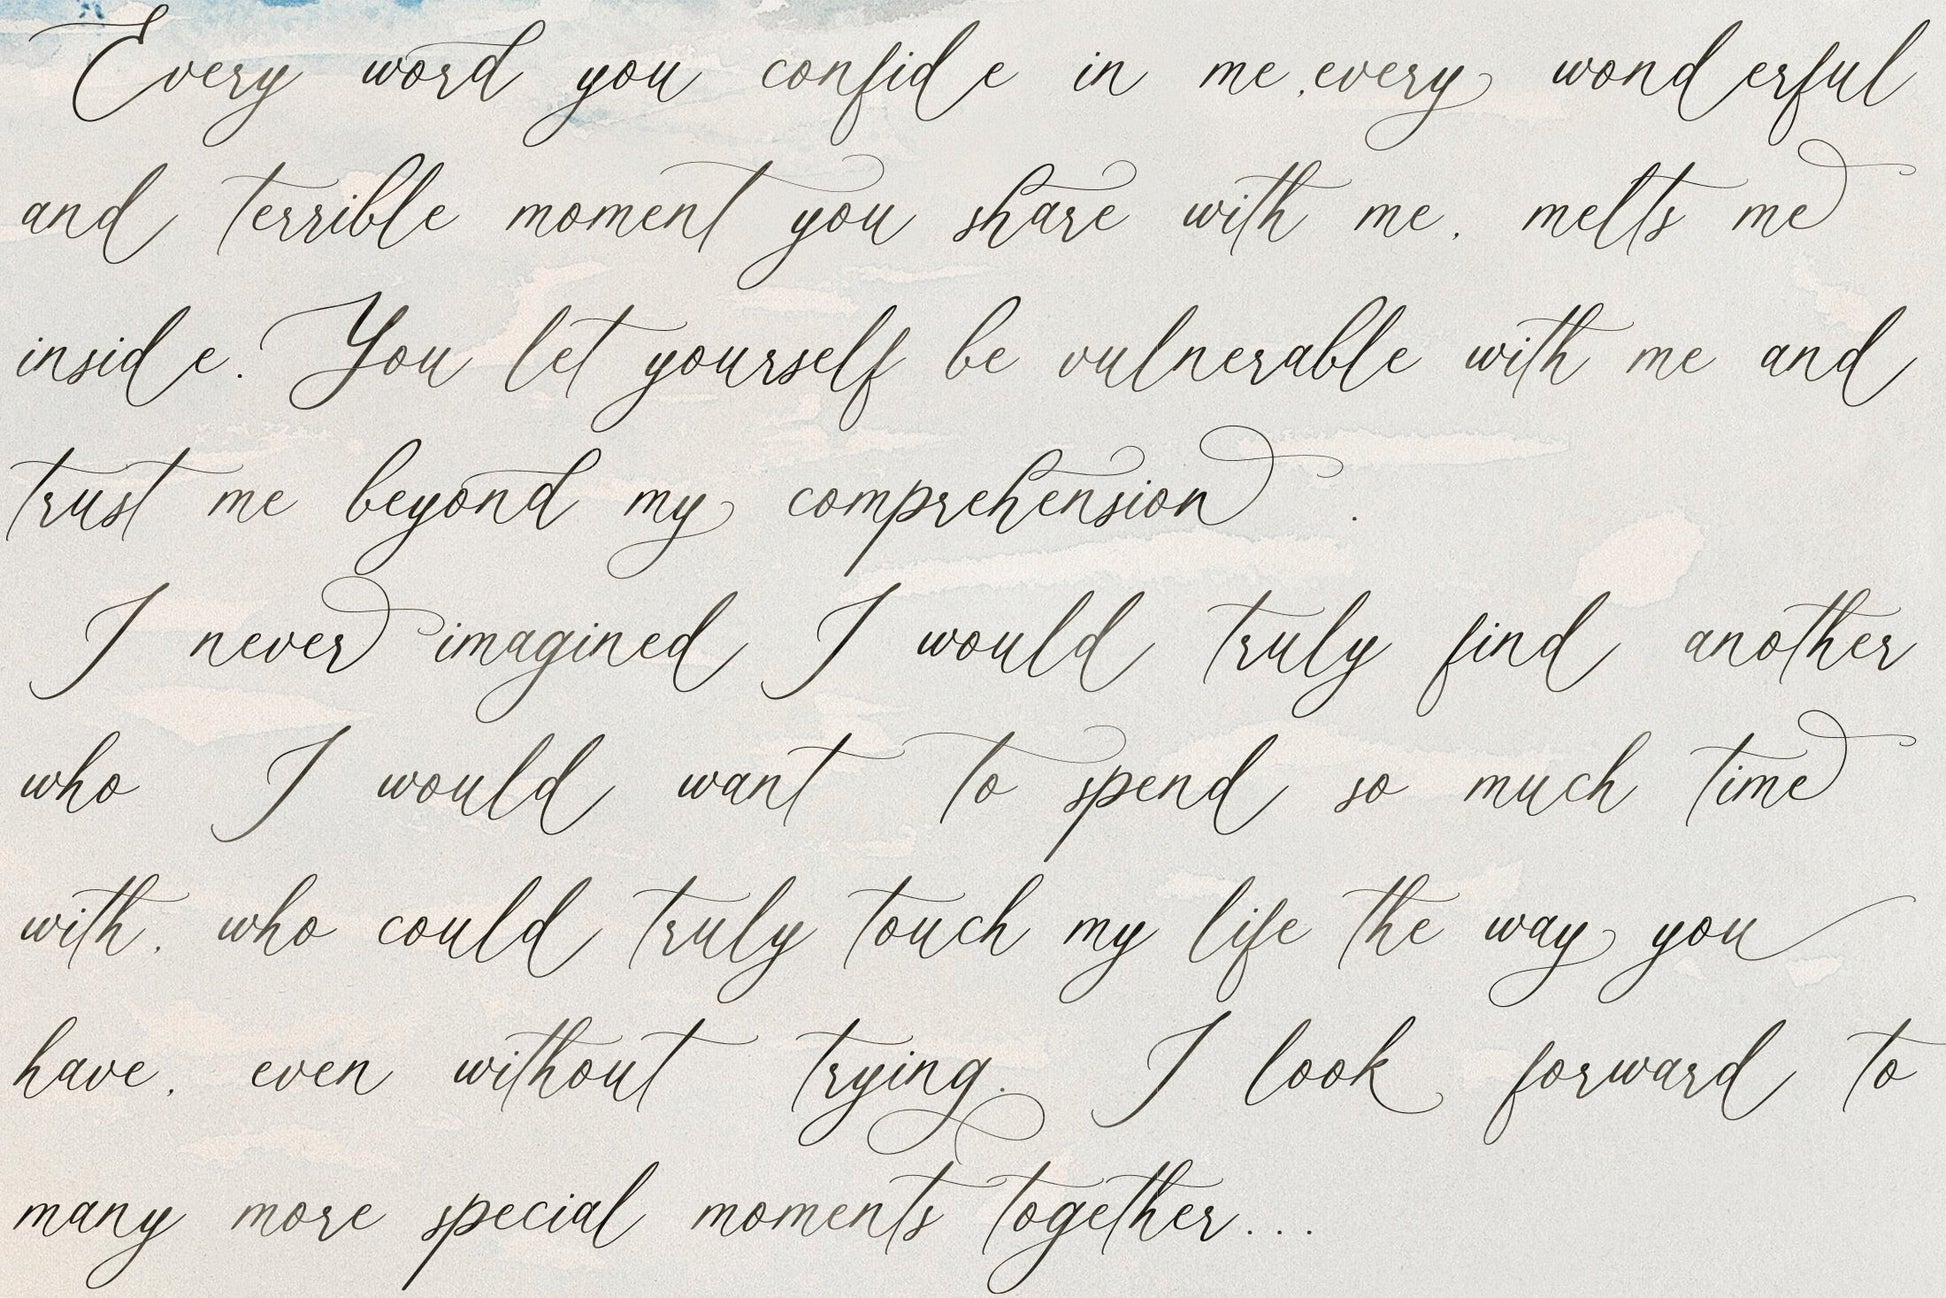 Every word you confide in me,every wonderful
and terrible moment you share with me, melts me
inside. You let yourself be vulnerable with me and
trust me beyond my comprehension .
I never imagined I would truly find another
who I would want to spend so much time
with, who could truly touch my life the way you
have, even without trying. I look forward to
many more special moments together...